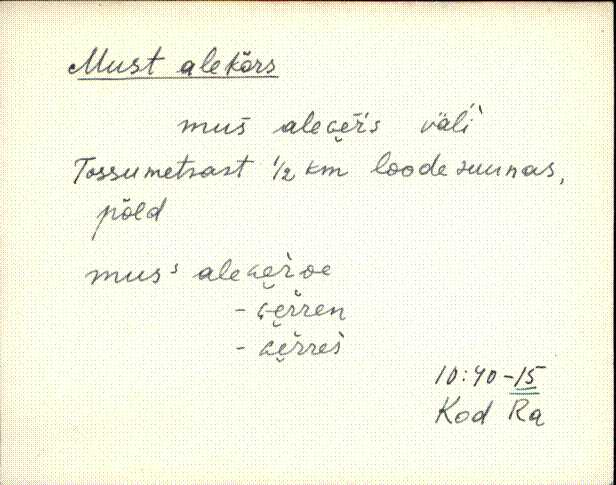 Must alekõrs
muš alecer̆s väli
Tossumetsast ½ km loode suunas,
põld
musˢ alecer̆oe
- cer̆ren
- cer̆res
10:40-15
Kod Ra